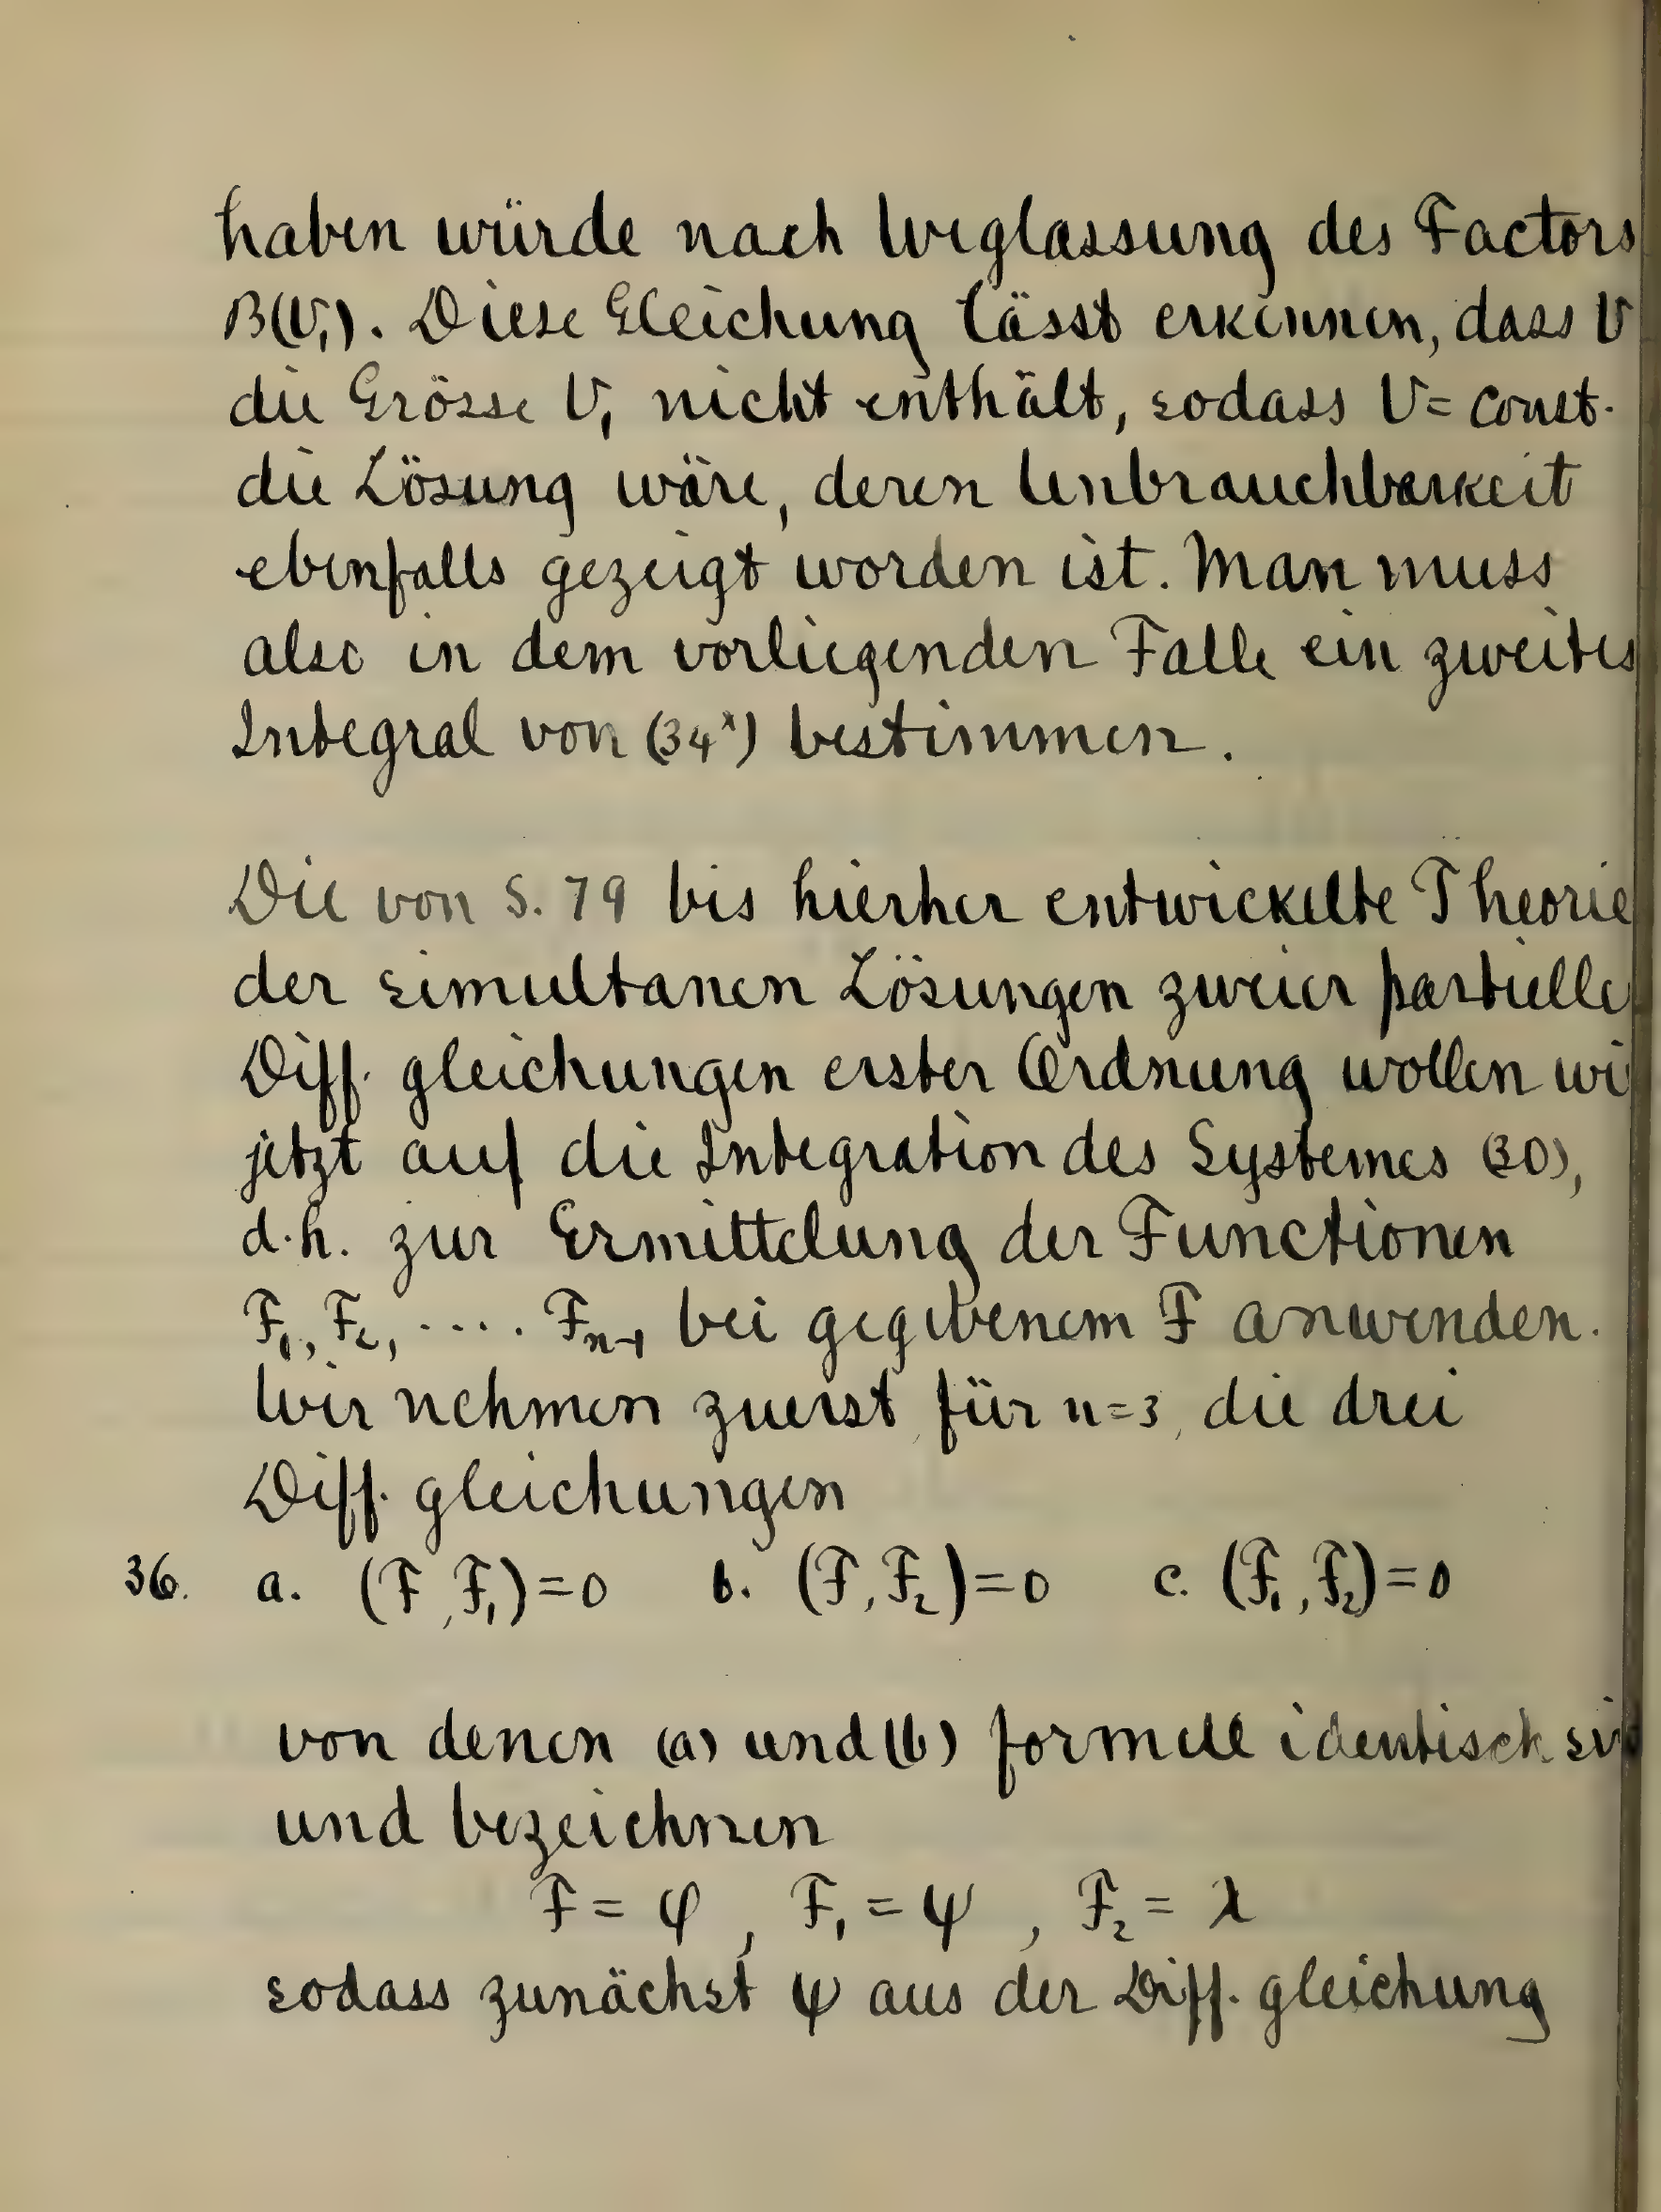 haben würde nach Weglassung des Factors
B(V₁). Diese Gleichung lässt erkennen, dass V
die Grösse V₁ nicht enthält, sodass V = const.
die Lösung wäre, deren Unbrauchbarkeit
ebenfalls gezeigt worden ist. Man muss
also in dem vorliegenden Falle ein zweites
Integral von (34ˣ) bestimmen.
Die von S. 79 bis hierher entwickelte Theorie
der simultanen Lösungen zweier partielle
Diff. gleichungen erster Ordnung wollen wi
jetzt auf die Integration des Systemes (30),
d.h. zur Ermittelung der Functionen
F₁, F₂, .... Fₙ₋₁ bei gegebenem F anwenden.
Wir nehmen zuerst, für n=3, die drei
Diff. gleichungen
36. a. (F, F₁)=0 b. (F, F₂)=0 c. (F₁, F₂)=0
von denen (a) und (b) formell identisch
und bezeichnen
F = φ , F₁ = ψ , F₂ = λ
sodass zunächst ψ aus der Diff. gleichung